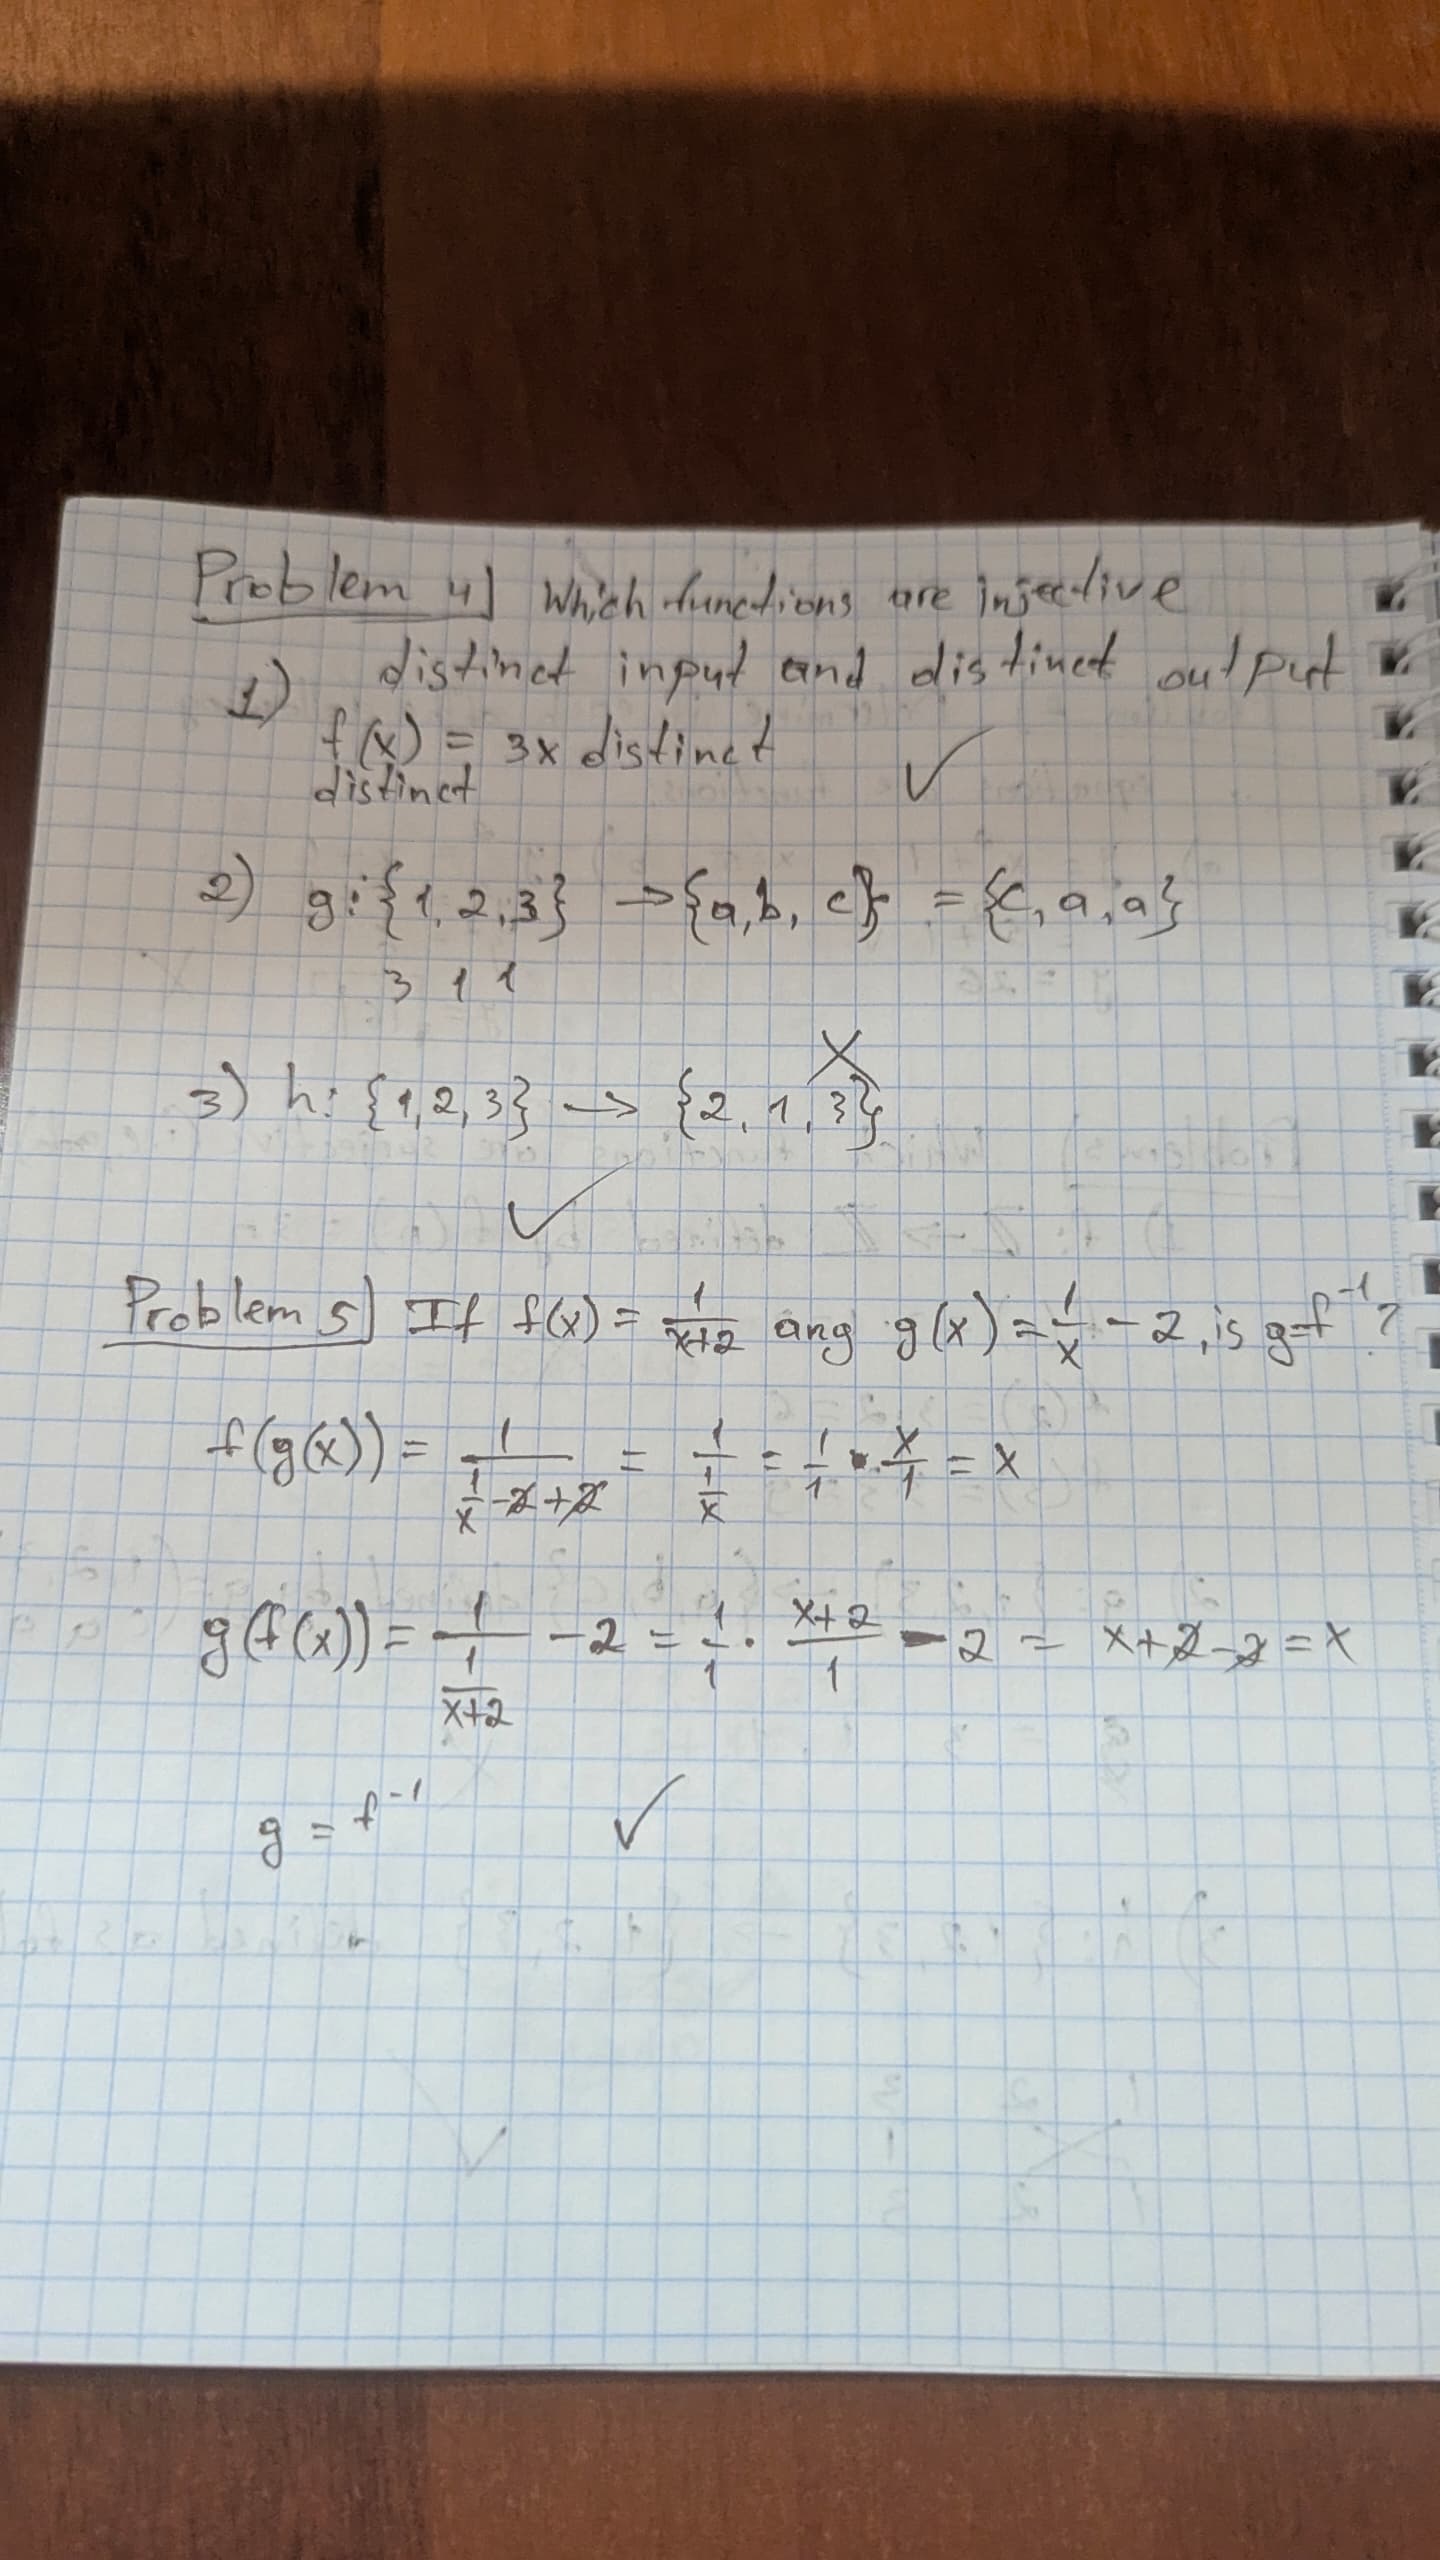 Problem 4] Which functions are injective
distinct input and distinct output
1) f(x) = 3x distinct ✓
distinct
2) g: {1, 2, 3} → {a, b, c} = {c, a, a}
3 1 1
X
3) h: {1, 2, 3} → {2, 1, 3}
✓
Problem 5] If f(x) = 1/(x+2) ang g(x) = 1/x - 2, is g=f⁻¹?
f(g(x)) = 1/(1/x - 2 + 2) = 1/(1/x) = 1/1 · x/1 = x
g(f(x)) = 1/(1/(x+2)) - 2 = 1/1 · (x+2)/1 - 2 = x+2-2 = x
g = f⁻¹ ✓